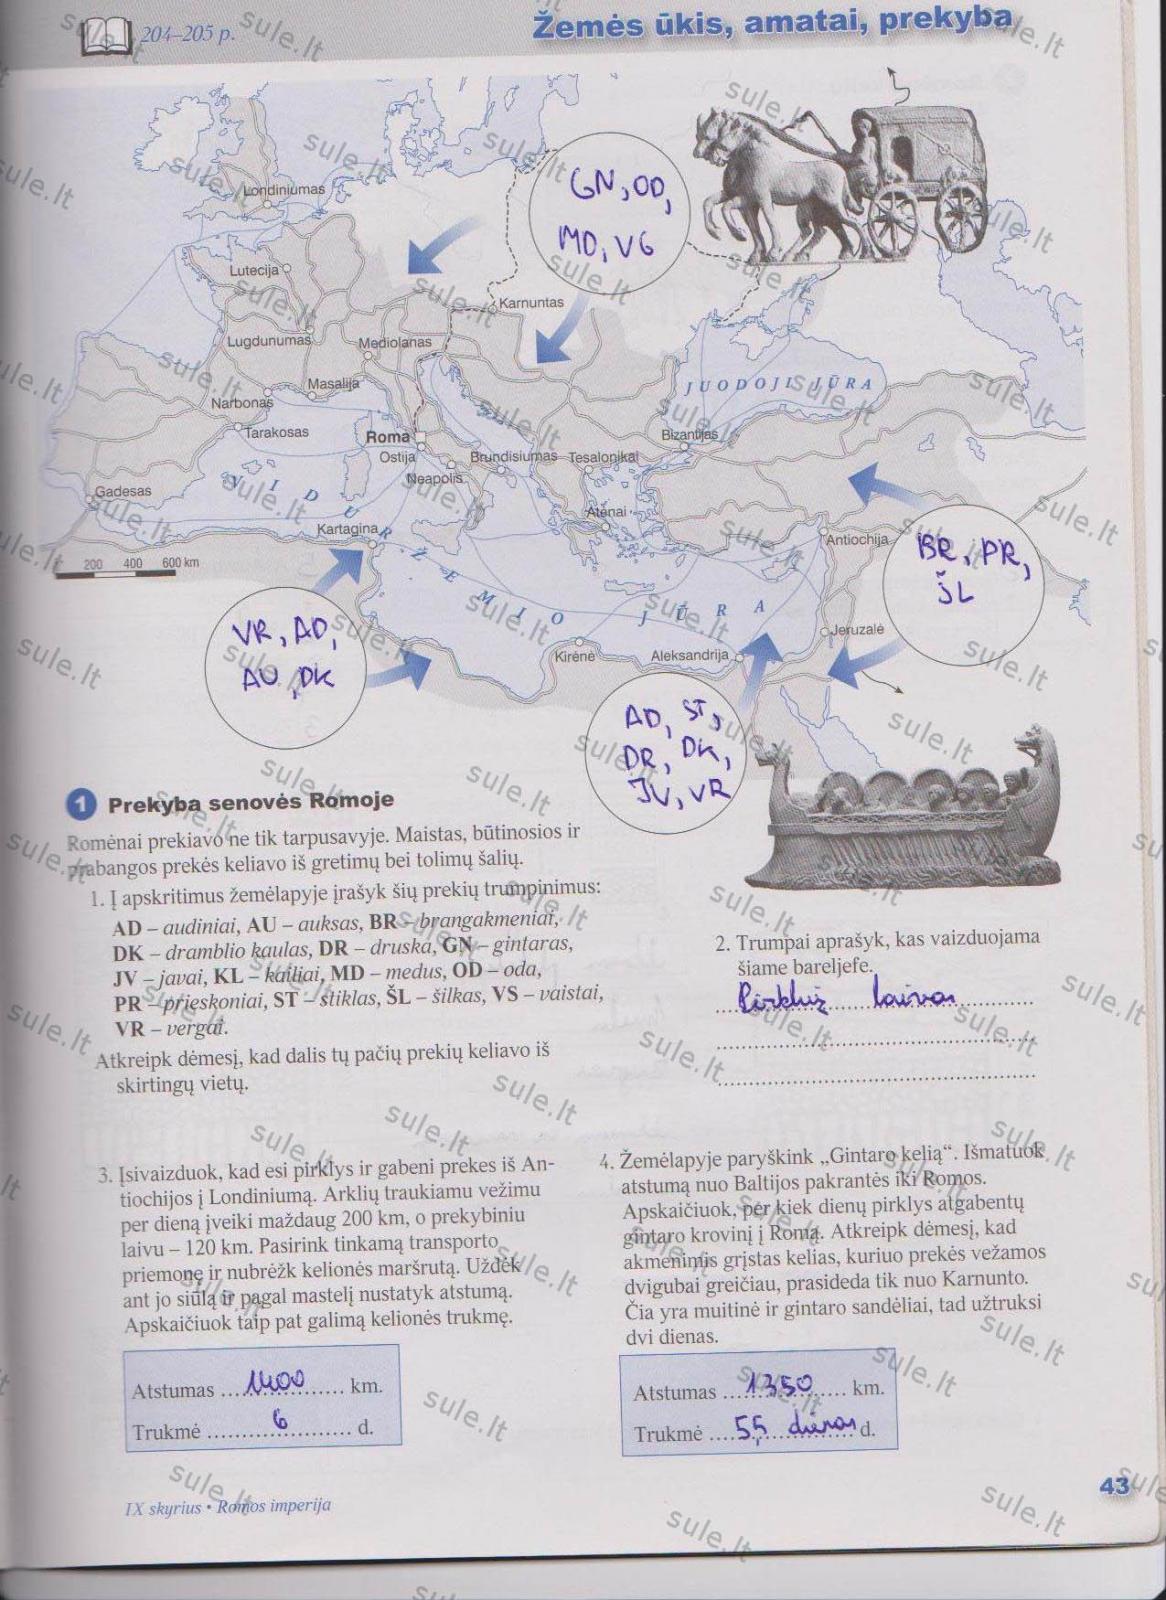 204–205 p.
Žemės ūkis, amatai, prekyba
GN, OD,
MD, VG
Londiniumas
Lutecija
Karnuntas
Lugdunumas
Mediolanas
Masalija
JUODOJI JŪRA
Narbonas
Tarakosas
Roma
Bizantijas
Ostija
Brundisiumas
Tesalonikai
Neapolis
Gadesas
Atėnai
Kartagina
Antiochija
VIDURŽEMIO JŪRA
BR, PR,
ŠL
200 400 600 km
VR, AD,
AU, DK
Jeruzalė
Kirėnė
Aleksandrija
AD, ST,
DR, DK,
JV, VR
1 Prekyba senovės Romoje
Romėnai prekiavo ne tik tarpusavyje. Maistas, būtinosios ir
prabangos prekės keliavo iš gretimų bei tolimų šalių.
1. Į apskritimus žemėlapyje įrašyk šių prekių trumpinimus:
AD – audiniai, AU – auksas, BR – brangakmeniai,
DK – dramblio kaulas, DR – druska, GN – gintaras,
JV – javai, KL – kailiai, MD – medus, OD – oda,
PR – prieskoniai, ST – stiklas, ŠL – šilkas, VS – vaistai,
VR – vergai.
Atkreipk dėmesį, kad dalis tų pačių prekių keliavo iš
skirtingų vietų.
2. Trumpai aprašyk, kas vaizduojama
šiame bareljefe.
Pirklių laivas
3. Įsivaizduok, kad esi pirklys ir gabeni prekes iš An-
tiochijos į Londiniumą. Arklių traukiamu vežimu
per dieną įveiki maždaug 200 km, o prekybiniu
laivu – 120 km. Pasirink tinkamą transporto
priemonę ir nubrėžk kelionės maršrutą. Uždėk
ant jo siūlą ir pagal mastelį nustatyk atstumą.
Apskaičiuok taip pat galimą kelionės trukmę.
Atstumas 1400 km.
Trukmė 6 d.
4. Žemėlapyje paryškink „Gintaro kelią“. Išmatuok
atstumą nuo Baltijos pakrantės iki Romos.
Apskaičiuok, per kiek dienų pirklys atgabentų
gintaro krovinį į Romą. Atkreipk dėmesį, kad
akmenimis grįstas kelias, kuriuo prekės vežamos
dvigubai greičiau, prasideda tik nuo Karnunto.
Čia yra muitinė ir gintaro sandėliai, tad užtruksi
dvi dienas.
Atstumas 1350 km.
Trukmė 5,5 dienos d.
IX skyrius • Romos imperija
43
sule.lt